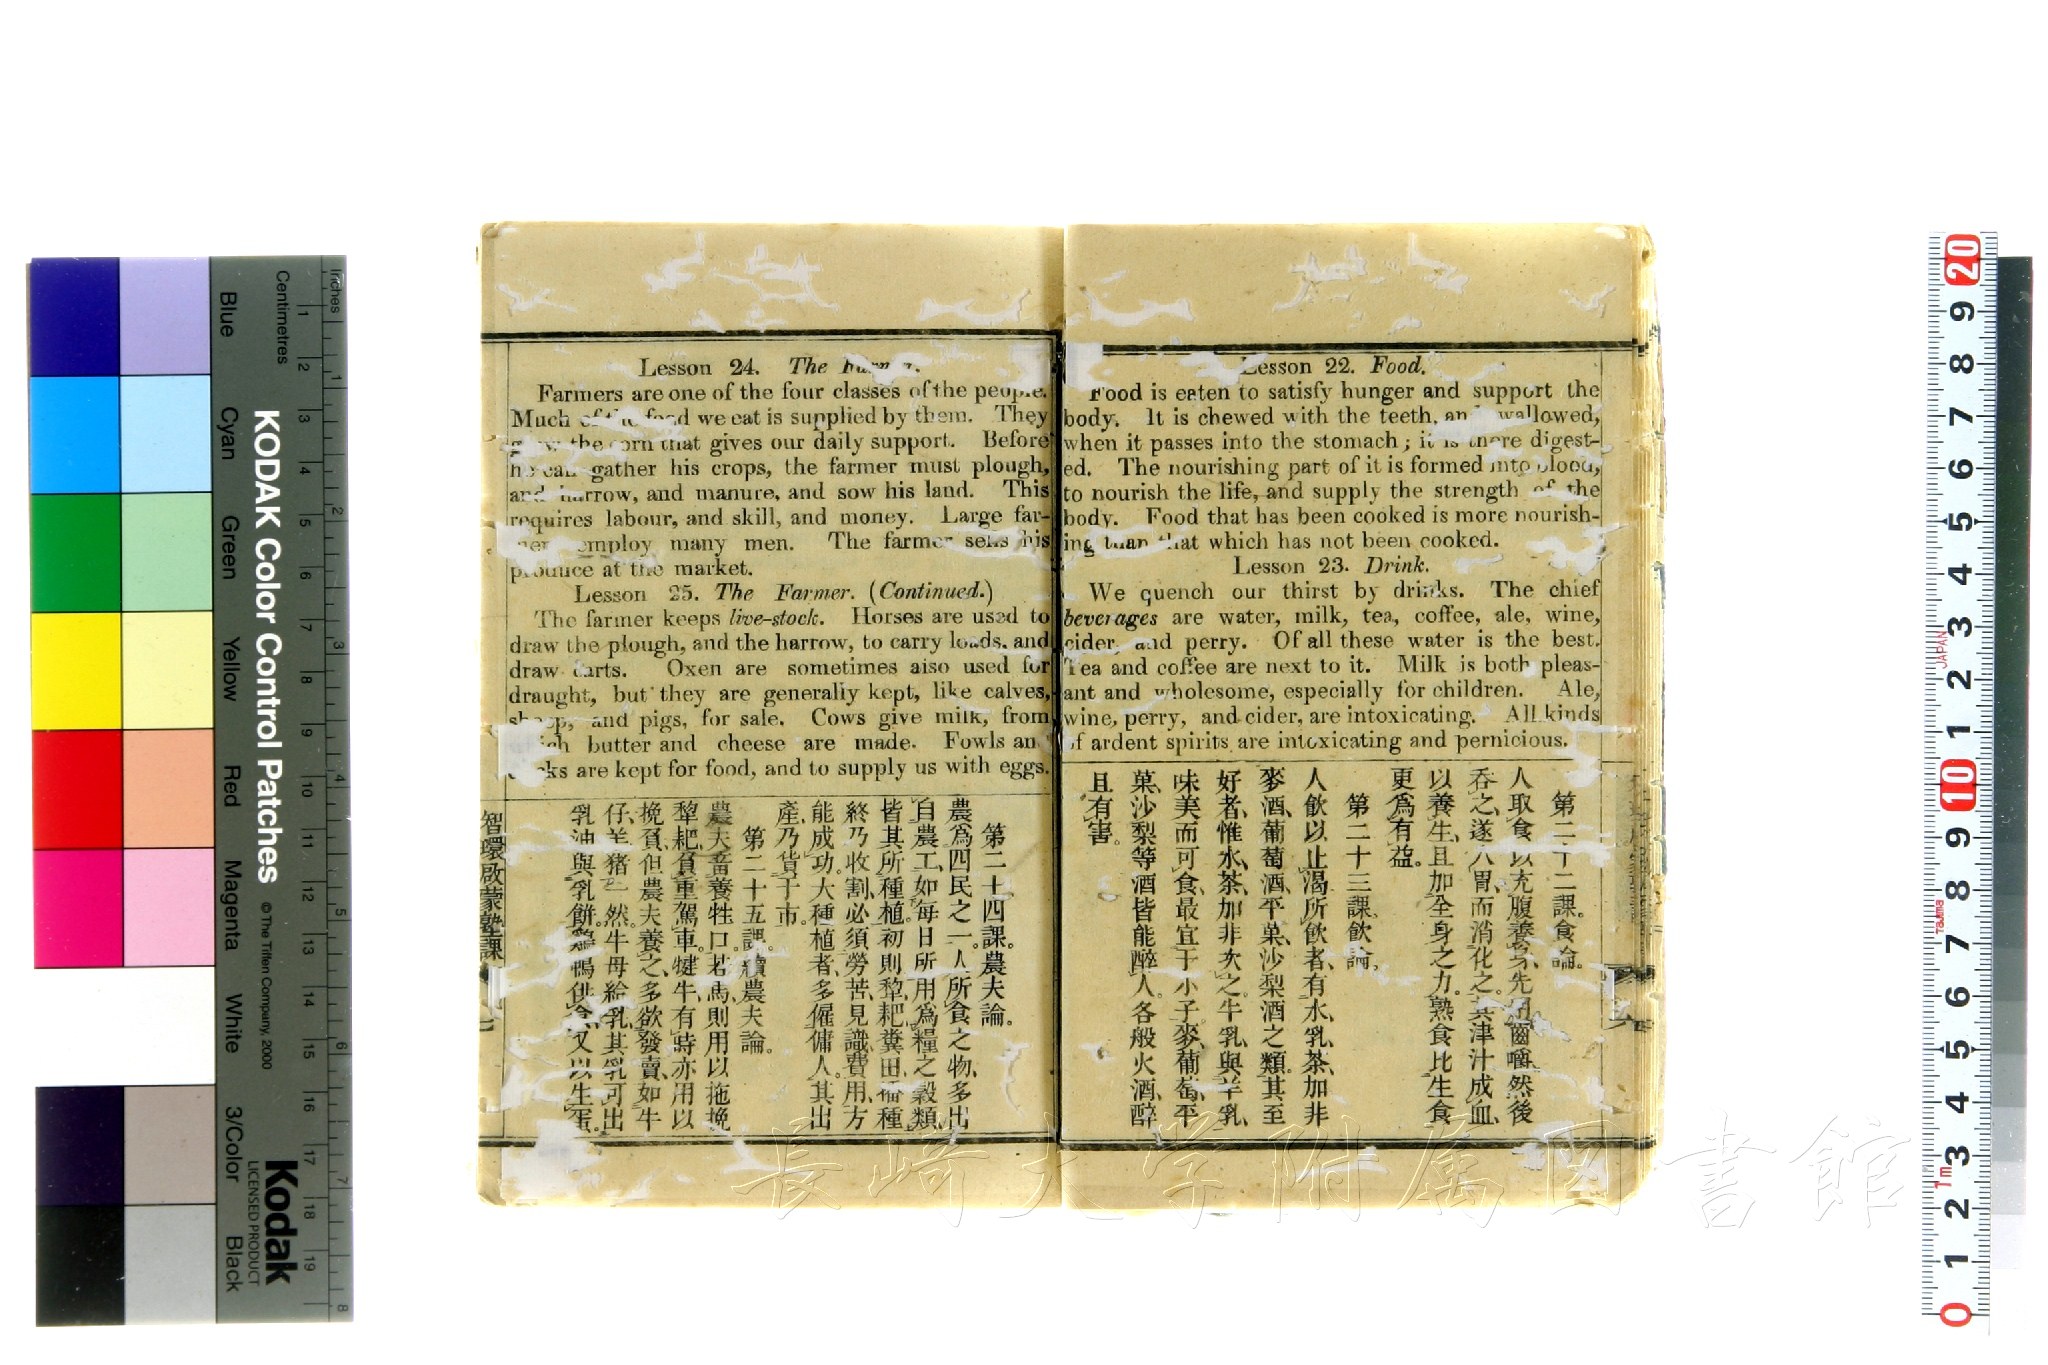 Lesson 22. Food.
Food is eaten to satisfy hunger and support the
body. It is chewed with the teeth, and swallowed,
when it passes into the stomach; it is there digest-
ed. The nourishing part of it is formed into blood,
to nourish the life, and supply the strength of the
body. Food that has been cooked is more nourish-
ing than that which has not been cooked.
Lesson 23. Drink.
We quench our thirst by drinks. The chief
beverages are water, milk, tea, coffee, ale, wine,
cider, and perry. Of all these water is the best.
Tea and coffee are next to it. Milk is both pleas-
ant and wholesome, especially for children. Ale,
wine, perry, and cider, are intoxicating. All kinds
of ardent spirits are intoxicating and pernicious.
第二十二課。食論。
人取食以充腹養身、先用齒嚼、然後
吞之、遂入胃、而消化之、其津汁成血、
以養生、且加全身之力、熟食比生食
更爲有益。
第二十三課、飲論、
人飲以止渴、所飲者、有水、乳、茶、加非、
麥酒、葡萄酒、平菓、沙梨酒之類、其至
好者、惟水、茶、加非次之、牛乳與羊乳、
味美而可食、最宜于小子、麥、葡萄、平
菓、沙梨等酒皆能醉人。各般火酒、醉
且有害。
Lesson 24. The Farmer.
Farmers are one of the four classes of the people.
Much of the food we eat is supplied by them. They
grow the corn that gives our daily support. Before
he can gather his crops, the farmer must plough,
and harrow, and manure, and sow his land. This
requires labour, and skill, and money. Large far-
mers employ many men. The farmer sells his
produce at the market.
Lesson 25. The Farmer. (Continued.)
The farmer keeps live-stock. Horses are used to
draw the plough, and the harrow, to carry loads, and
draw carts. Oxen are sometimes also used for
draught, but they are generally kept, like calves,
sheep, and pigs, for sale. Cows give milk, from
which butter and cheese are made. Fowls and
ducks are kept for food, and to supply us with eggs.
第二十四課。農夫論。
農爲四民之一、人所食之物、多出
自農工、如每日所用爲糧之穀類、
皆其所種植、初則犂耙糞田、播種
終乃收割、必須勞苦、見識、費用、方
能成功。大種植者、多僱傭人、其出
產、乃貨于市。
第二十五課。續農夫論。
農夫畜養牲口。若馬則用以拖挽
犂耙、負重駕車。犍牛有時亦用以
挽負、但農夫養之、多欲發賣、如牛
仔、羊、猪已然。牛母給乳、其乳可出
乳油與乳餅。雞鴨供食、又以生蛋。
智環啟蒙塾課
KODAK Color Control Patches
© The Tiffen Company, 2000
Kodak
LICENSED PRODUCT
Inches
Centimetres
Blue
Cyan
Green
Yellow
Red
Magenta
White
3/Color
Black
1 2 3 4 5 6 7 8 9 10 11 12 13 14 15 16 17 18 19
1 2 3 4 5 6 7 8
20 9 8 7 6 5 4 3 2 1 10 9 8 7 6 5 4 3 2 1 0
JAPAN
Tajima
1m
長崎大学附属図書館